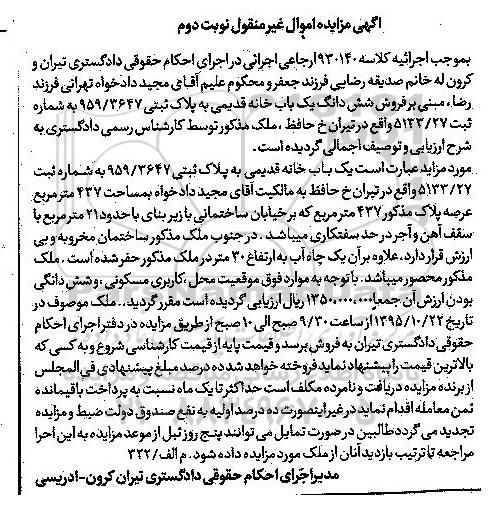 آگهی مزایده اموال غیر منقول نوبت دوم
بموجب اجرائیه کلاسه ۹۳۰۱۴۰ ارجاعی اجرائی در اجرای احکام حقوقی دادگستری تیران و
کرون له خانم صدیقه رضایی فرزند جعفر و محکوم علیهم آقای مجید دادخواه تهرانی فرزند
رضا، مبنی بر فروش شش دانگ یک باب خانه قدیمی به پلاک ثبتی ۹۵۹/۳۶۴۷ به شماره
ثبت ۵۱۳۳/۲۷ واقع در تیران خ حافظ ، ملک مذکور توسط کارشناس رسمی دادگستری به
شرح ارزیابی و توصیف اجمالی گردیده است.
مورد مزاید عبارت است یک باب خانه قدیمی به پلاک ثبتی ۹۵۹/۳۶۴۷ به شماره ثبت
۵۱۳۳/۲۷ واقع در تیران خ حافظ به مالکیت آقای مجید دادخواه بمساحت ۴۳۷ متر مربع
عرصه پلاک مذکور ۴۳۷ متر مربع که بر خیابان ساختمانی با زیر بنای با حدود ۲۱ متر مربع با
سقف آهن و آجر در حد سفتکاری میباشد . در جنوب ملک مذکور ساختمان مخروبه و بی
ارزش قرار دارد، علاوه بر آن یک چاه آب به ارتفاع ۳۰ متر در ملک مذکور حفر شده است ، ملک
مذکور محصور میباشد. با توجه به موارد فوق موقعیت محل ،کاربری مسکونی ،و شش دانگی
بودن ارزش آن جمعا ۱۳۵۰،۰۰۰،۰۰۰ ریال ارزیابی گردیده است مقرر گردید. ، ملک موصوف در
تاریخ ۱۳۹۵/۱۰/۲۲ از ساعت ۹/۳۰ صبح الی ۱۰ صبح از طریق مزایده در دفتر اجرای احکام
حقوقی دادگستری تیران به فروش برسد و قیمت پایه از قیمت کارشناسی شروع و به کسی که
بالاترین قیمت را پیشنهاد نماید فروخته خواهد شد ده درصد مبلغ پیشنهادی فی المجلس
از برنده مزایده دریافت و نامرده مکلف است حداکثر تا یک ماه نسبت به پرداخت باقیمانده
ثمن معامله اقدام نماید در غیر اینصورت ده درصد اولیه به نفع صندوق دولت ضبط و مزایده
تجدید می گردد طالبین در صورت تمایل می توانند پنج روز قبل از موعد مزایده به این اجرا
مراجعه تا ترتیب بازدید آنان از ملک مورد مزایده داده شود. م الف/ ۳۲۲
مدیر اجرای احکام حقوقی دادگستری تیران کرون- ادریسی